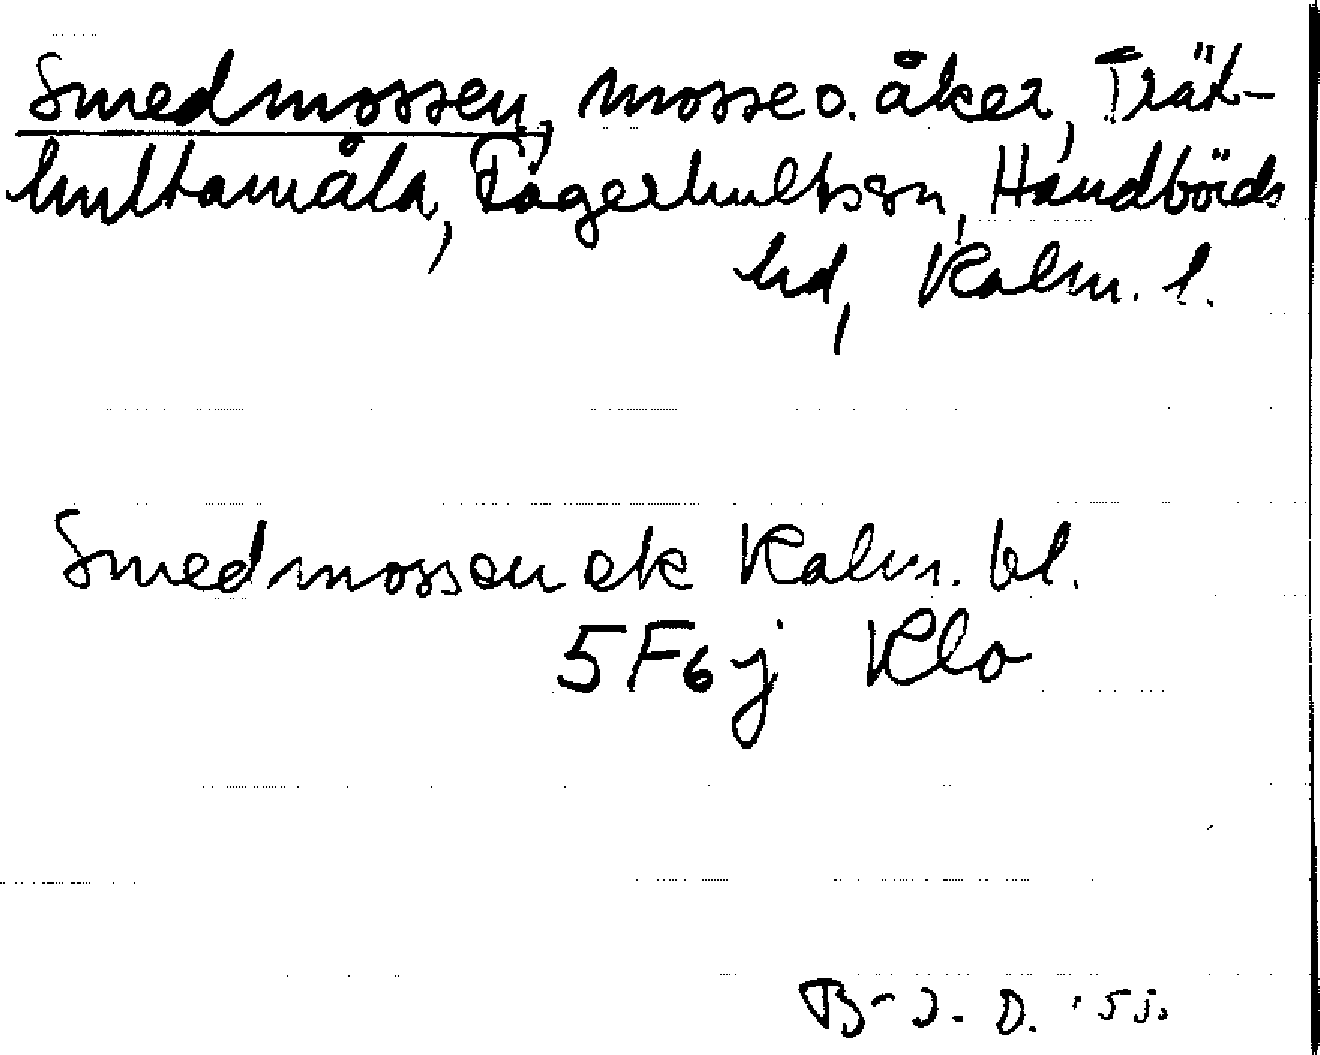 Smedmossen, mosse o. åker, Trät-
hultamåla, Fagerhults sn, Handbörds
hd, Kalm. l.
Smedmossen ek Kalm. bl.
5F6j Klo
B-J. D. '55.